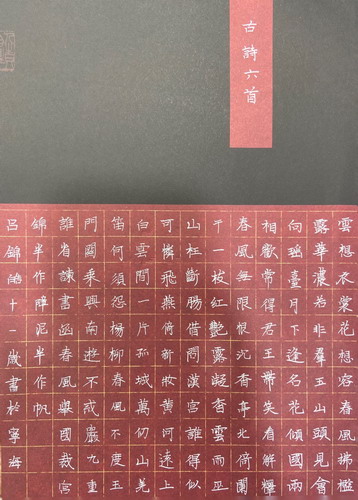 古詩六首
雲想衣裳花想容春風拂檻
露華濃若非羣玉山頭見會
向瑤臺月下逢名花傾國兩
相歡常得君王帶笑看解釋
春風無限恨沉香亭北倚闌
干一枝紅艷露凝香雲雨巫
山枉斷腸借問漢宮誰得似
可憐飛燕倚新妝黃河遠上
白雲間一片孤城萬仞山羌
笛何須怨楊柳春風不度玉
門關乘興南遊不戒嚴九重
誰省諫書函春風舉國裁宮
錦半作障泥半作帆
呂錦皓十一歲書於寧海